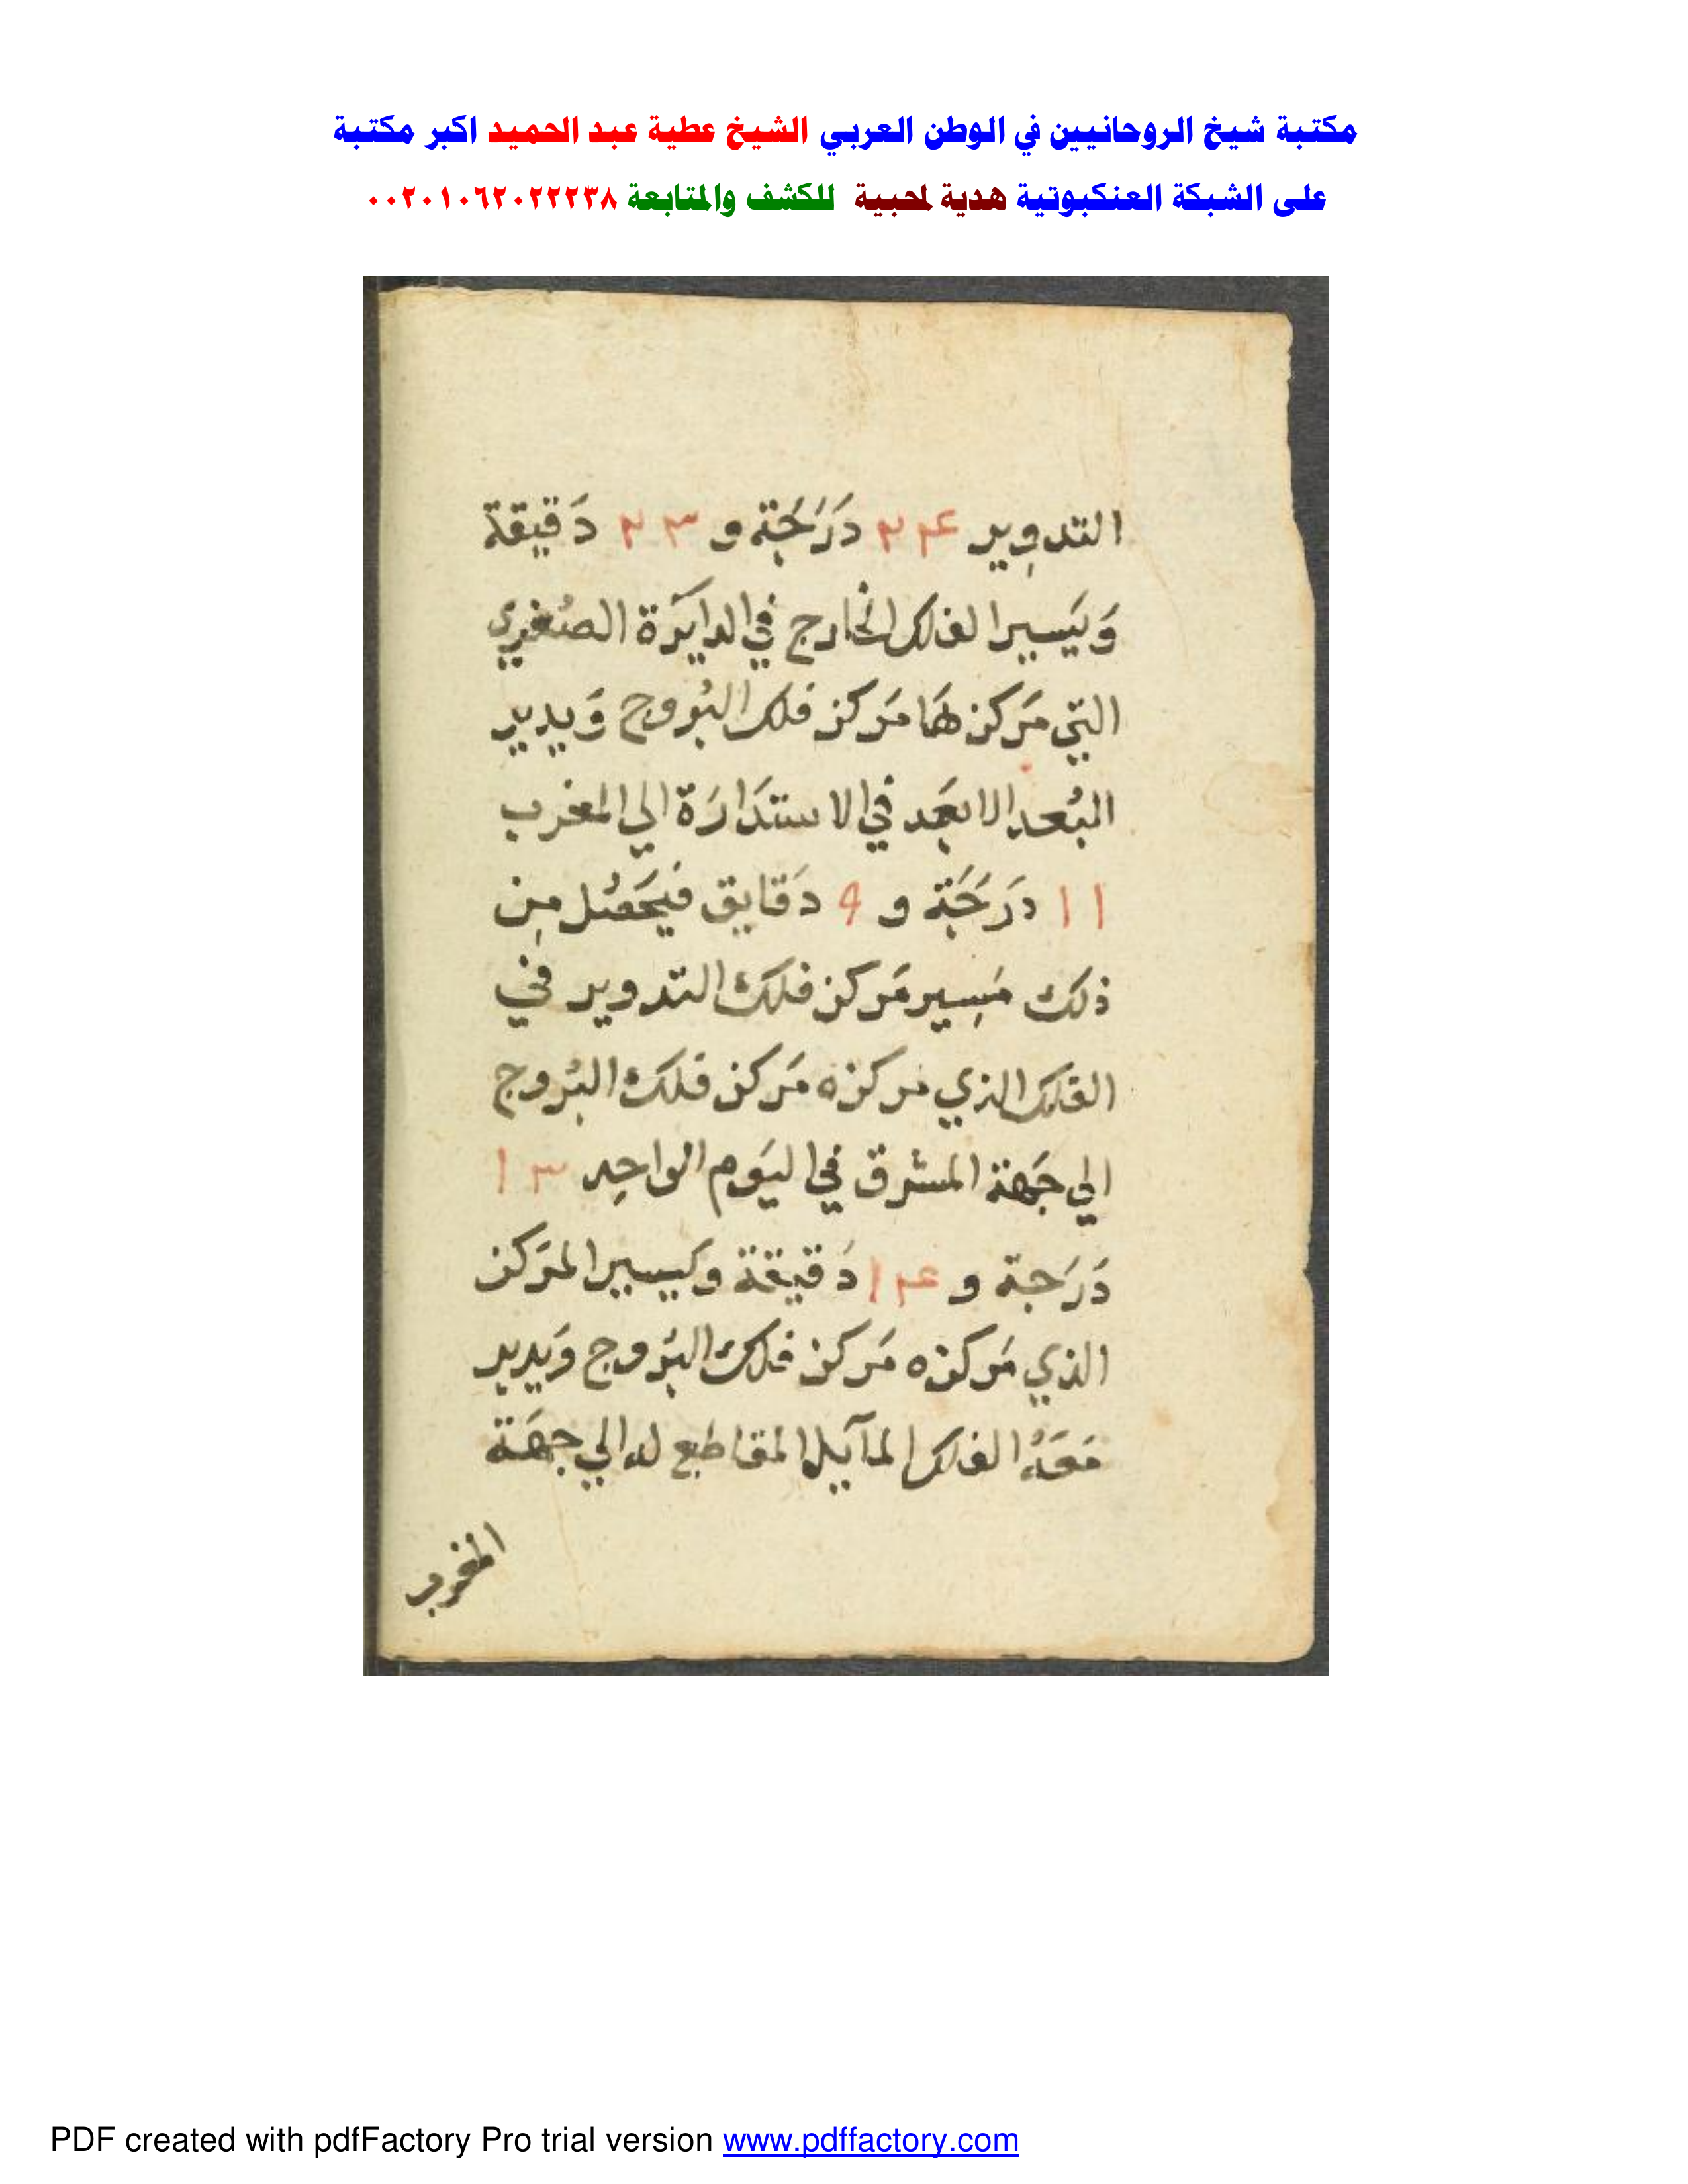 مكتبة شيخ الروحانيين في الوطن العربي الشيخ عطية عبد الحميد اكبر مكتبة
على الشبكة العنكبوتية هدية لمحبية للكشف والمتابعة ٠٠٢٠١٠٦٢٠٢٢٢٣٨
التدوِير ٢٤ دَرَجَة و ٢٣ دَقيقة
وَيَسير الفلك الخارج في الدايَرة الصُغري
التي مَركزهَا مَركز فلك البُروج وَيدير
البُعد الابعَد في الاستدَارَة الي المغرب
١١ دَرَجَة و ٩ دَقايق فيَحصُل مِن
ذلك مَسِير مَركز فلك التدوير في
الفلك الذي مركزه مَركز فلك البُروج
الي جَهة المشرق في اليَوم الواحِد ١٣
دَرَجة و ١٤ دَقيقة وَيسير المَركز
الذي مَركزه مَركز فلك البُروج وَيدير
مَعَهُ الفلك المآيل المقاطع له الي جهَة
المغرب
PDF created with pdfFactory Pro trial version www.pdffactory.com